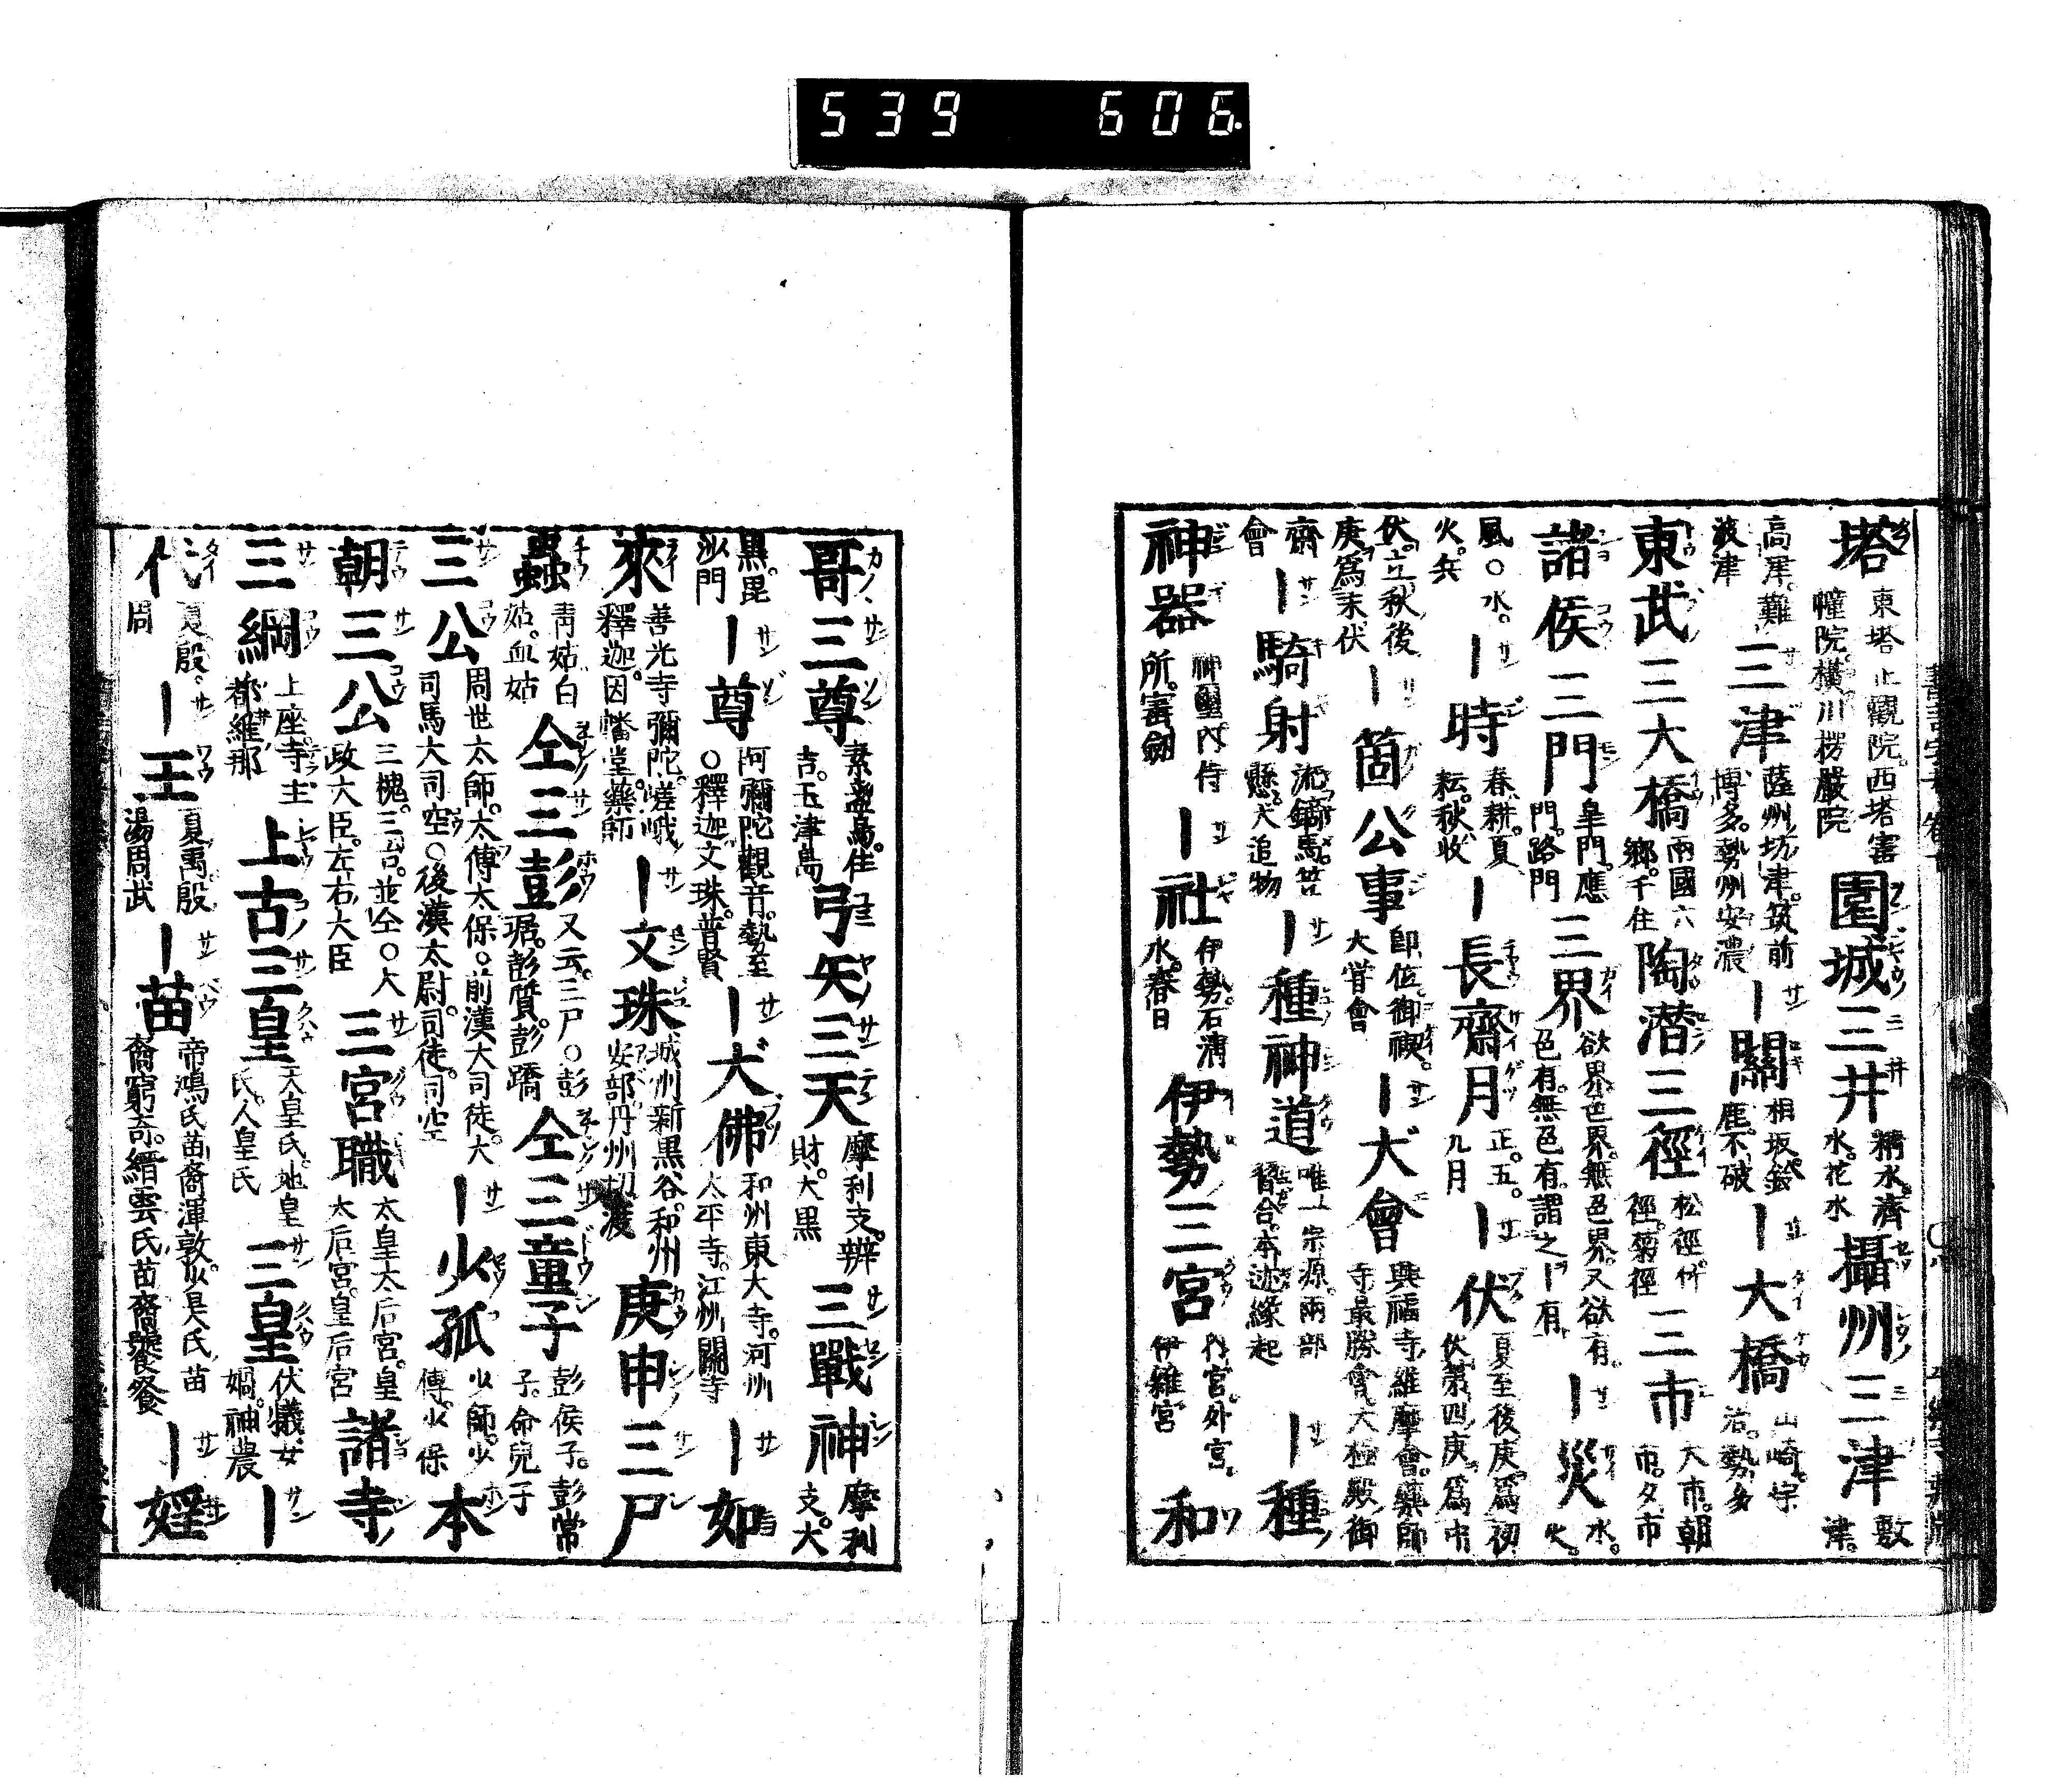 539 606.
塔 東塔止觀院。西塔寳幢院。横川楞嚴院 園城三井 精水。濟水。花水 攝州三津 敷津。
高津。難波津 三津 薩州坊津。筑前博多。勢州安濃 ｜關 相坂。鈴鹿。不破 ｜大橋 山崎。宇治。勢多
東武三大橋 兩國六郷。千住 陶潜三徑 松徑。竹徑。菊徑 三市 大市。朝市。夕市
諸侯三門 皐門。應門。路門 三界 欲界。色界。無色界。又欲有。色有。無色有。謂之｜有 ｜災 水。火。
風。○水。火。兵 ｜時 春耕。夏耘。秋收 ｜長齋月 正。五。九月 ｜伏 夏至後庚爲初伏。第四庚爲中
伏。立秋後庚爲末伏 ｜箇公事 即位。御禊。大甞會 ｜大會 興福寺維摩會。藥師寺最勝會。大極殿御
齋會 ｜騎射 流鏑馬。笠懸。犬追物 ｜種神道 唯一宗源。兩部習合。本迹縁起 ｜種
神器 神璽。内侍所。寳劔 ｜社 伊勢。石淸水。春日 伊勢三宮 内宮。外宮。伊雜宮 和
哥三尊 素盞烏。住吉。玉津島 弓矢三天 摩利支。辨財。大黒 三戰神 摩利支。大
黒。毘沙門 ｜尊 阿彌陀。觀音。勢至○釋迦。文珠。普賢 ｜大佛 和州東大寺。河州太平寺。江州關寺 ｜如
來 善光寺彌陀。嵯峨釋迦。因幡堂藥師 ｜文珠 城州新黒谷。和州安部。丹州切渡 庚申三尸
蟲 靑姑。白姑。血姑 仝三彭 又云。三尸○彭琚。彭質。彭蹻 仝三童子 彭侯子。彭常子。命兒子
三公 周世太師。太傅。太保○前漢大司徒。大司馬。大司空○後漢太尉。司徒。司空 ｜少孤 少師。少傅。少保 本
朝三公 三槐。三台。並仝○大政大臣。左右大臣 三宮職 太皇太后宮。皇太后宮。皇后宮 諸寺
三綱 上座。寺主。都維那 上古三皇 天皇氏。地皇氏。人皇氏 三皇 伏犧。女媧。神農 ｜
代 夏。殷。周 ｜王 夏禹。殷湯。周武 ｜苗 帝鴻氏苗裔渾敦。少昊氏苗裔窮奇。縉雲氏苗裔饕餮 ｜婬